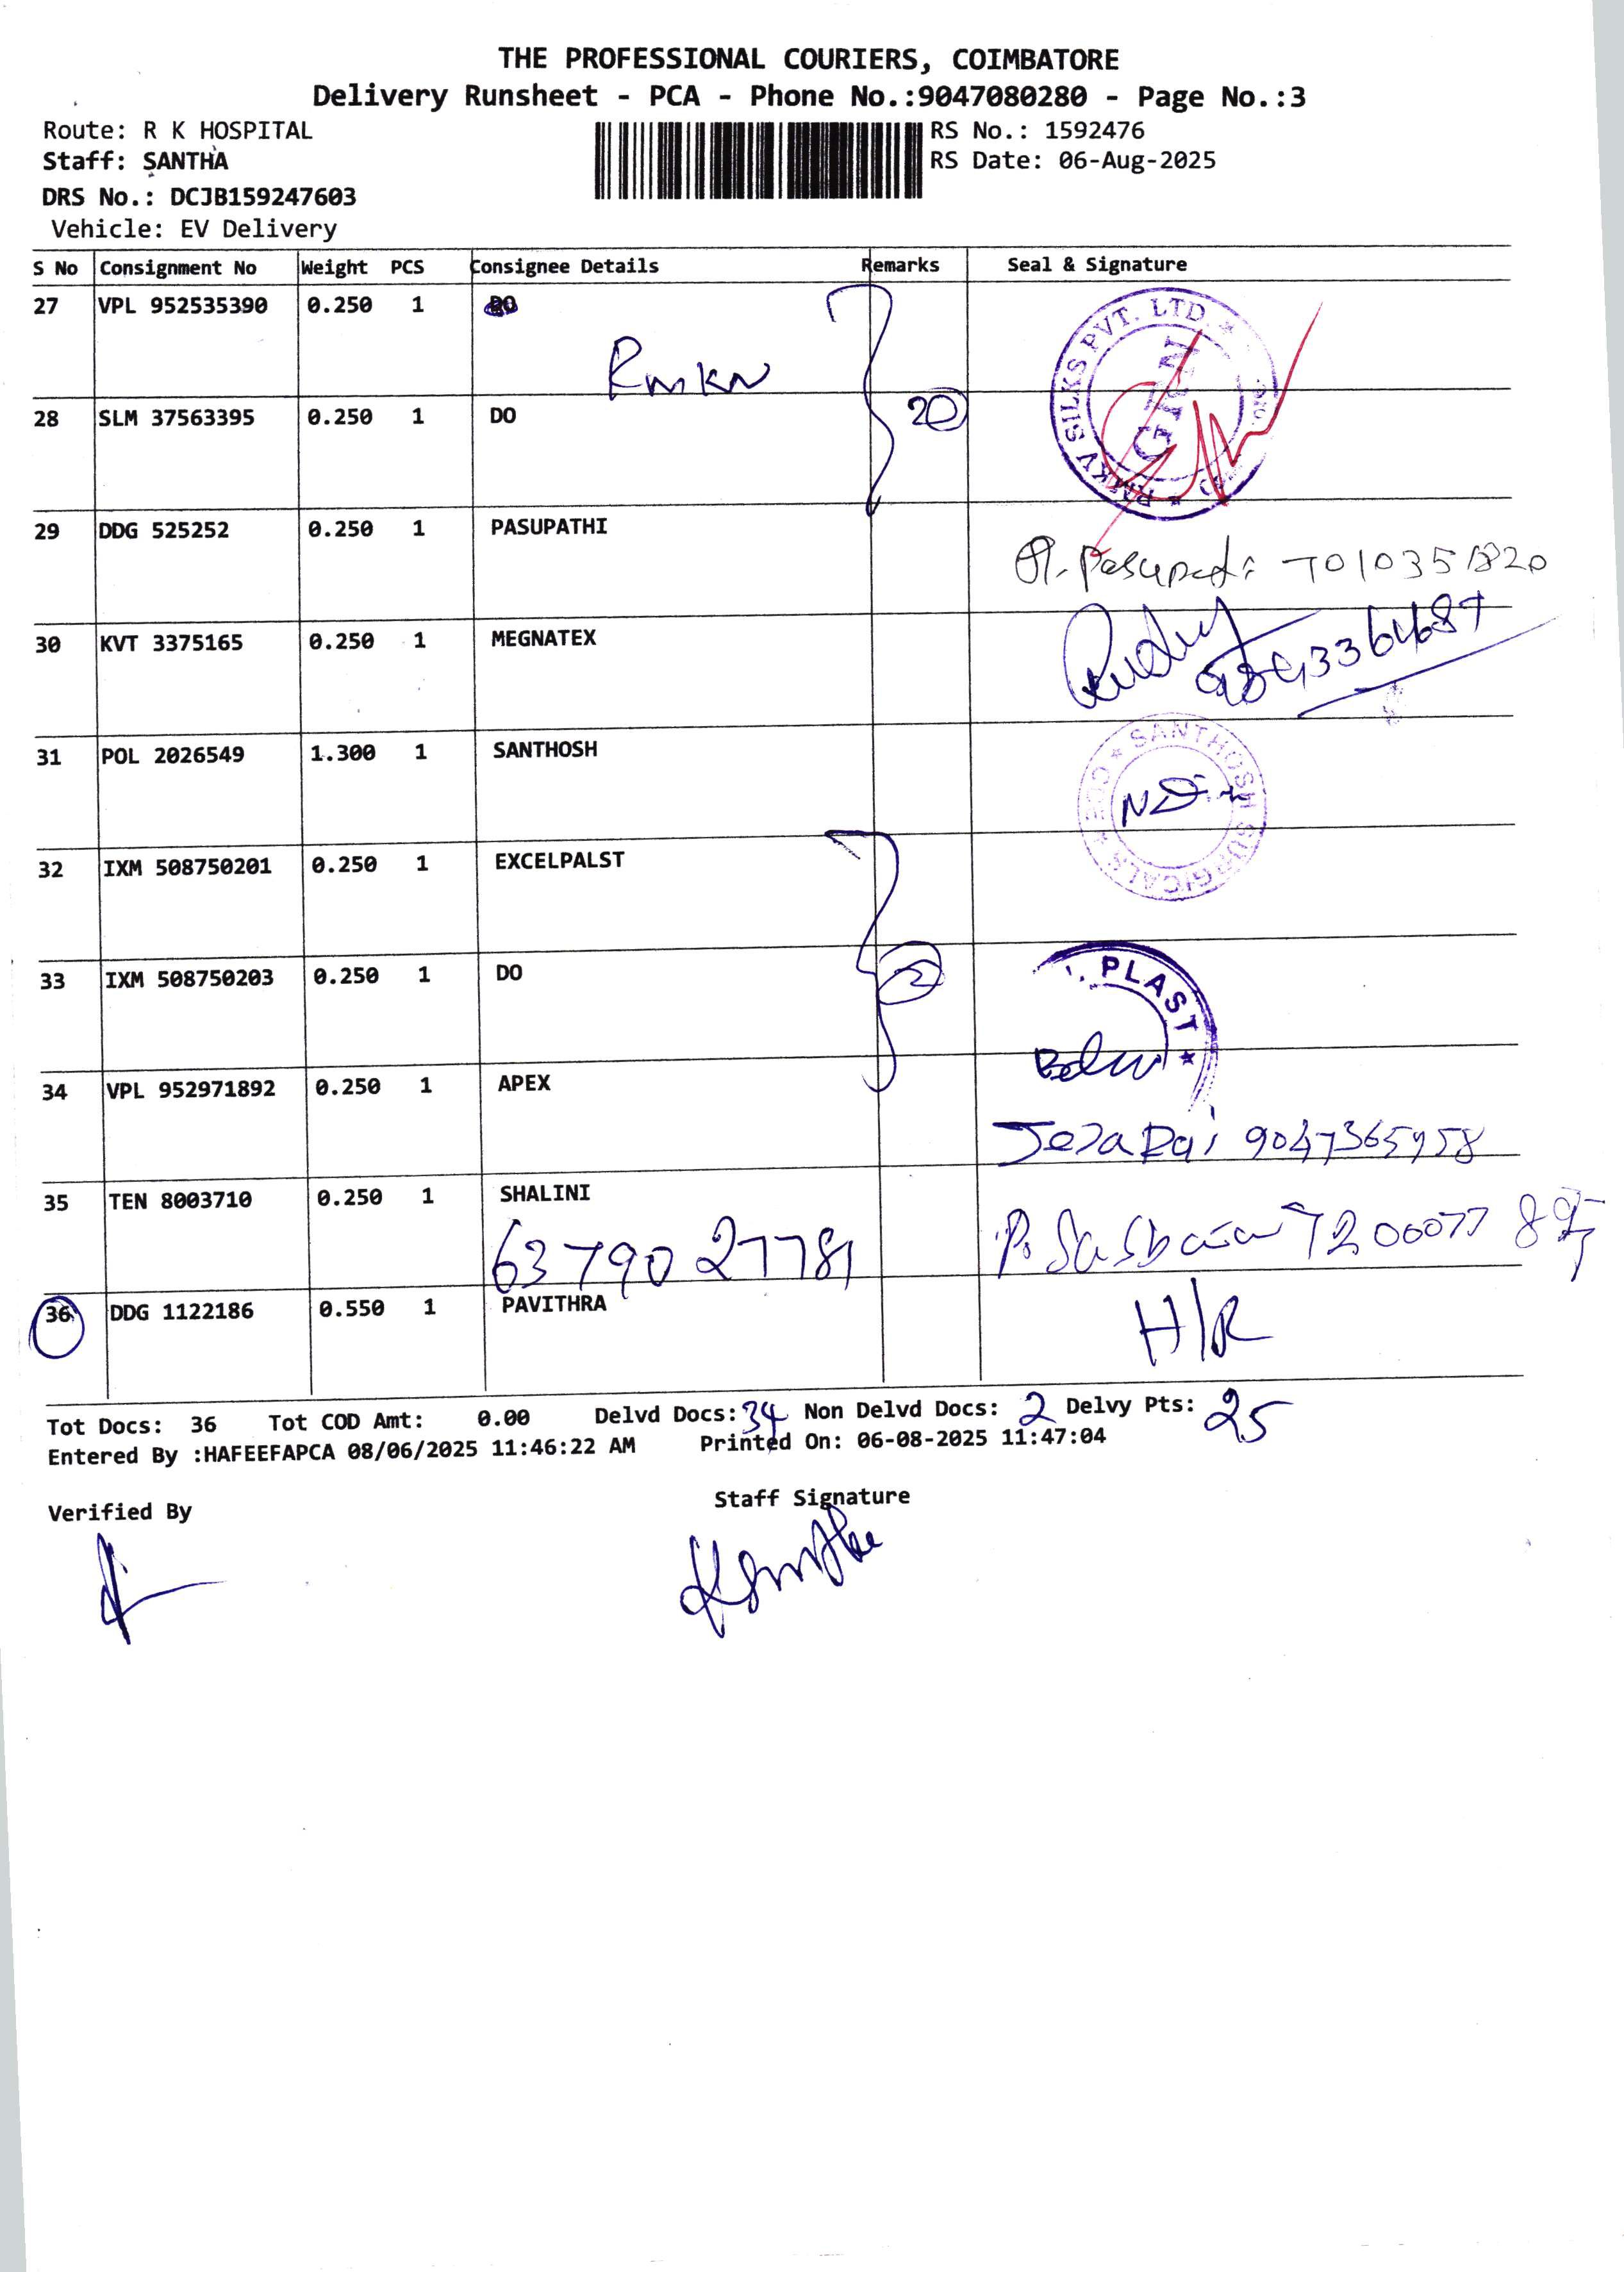 THE PROFESSIONAL COURIERS, COIMBATORE
Delivery Runsheet - PCA - Phone No.:9047080280 - Page No.:3
Route: R K HOSPITAL
RS No.: 1592476
Staff: SANTHA
RS Date: 06-Aug-2025
DRS No.: DCJB159247603
Vehicle: EV Delivery
S No Consignment No Weight PCS Consignee Details Remarks Seal & Signature
27 VPL 952535390 0.250 1 DO
RMKV SILKS PVT. LTD.
20
28 SLM 37563395 0.250 1 DO
29 DDG 525252 0.250 1 PASUPATHI
7010351820
30 KVT 3375165 0.250 1 MEGNATEX
31 POL 2026549 1.300 1 SANTHOSH
SANTHOSH SURGICALS CBE
32 IXM 508750201 0.250 1 EXCELPALST
33 IXM 508750203 0.250 1 DO
2
PLAST
34 VPL 952971892 0.250 1 APEX
9047365958
35 TEN 8003710 0.250 1 SHALINI
6379027781
36 DDG 1122186 0.550 1 PAVITHRA
H/R
Tot Docs: 36 Tot COD Amt: 0.00 Delvd Docs: 34 Non Delvd Docs: 2 Delvy Pts: 25
Entered By :HAFEEFAPCA 08/06/2025 11:46:22 AM Printed On: 06-08-2025 11:47:04
Verified By
Staff Signature